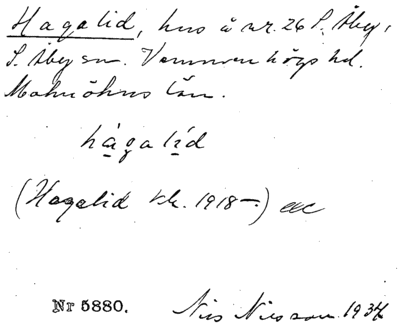 Hagalid, hus å nr. 26 S. Åby,
S. Åby sn. Vemmenhögs hd.
Malmöhus län.
hàgalíd
(Hagalid kk. 1918–)
Nr 5880. Nils Nilsson 1937